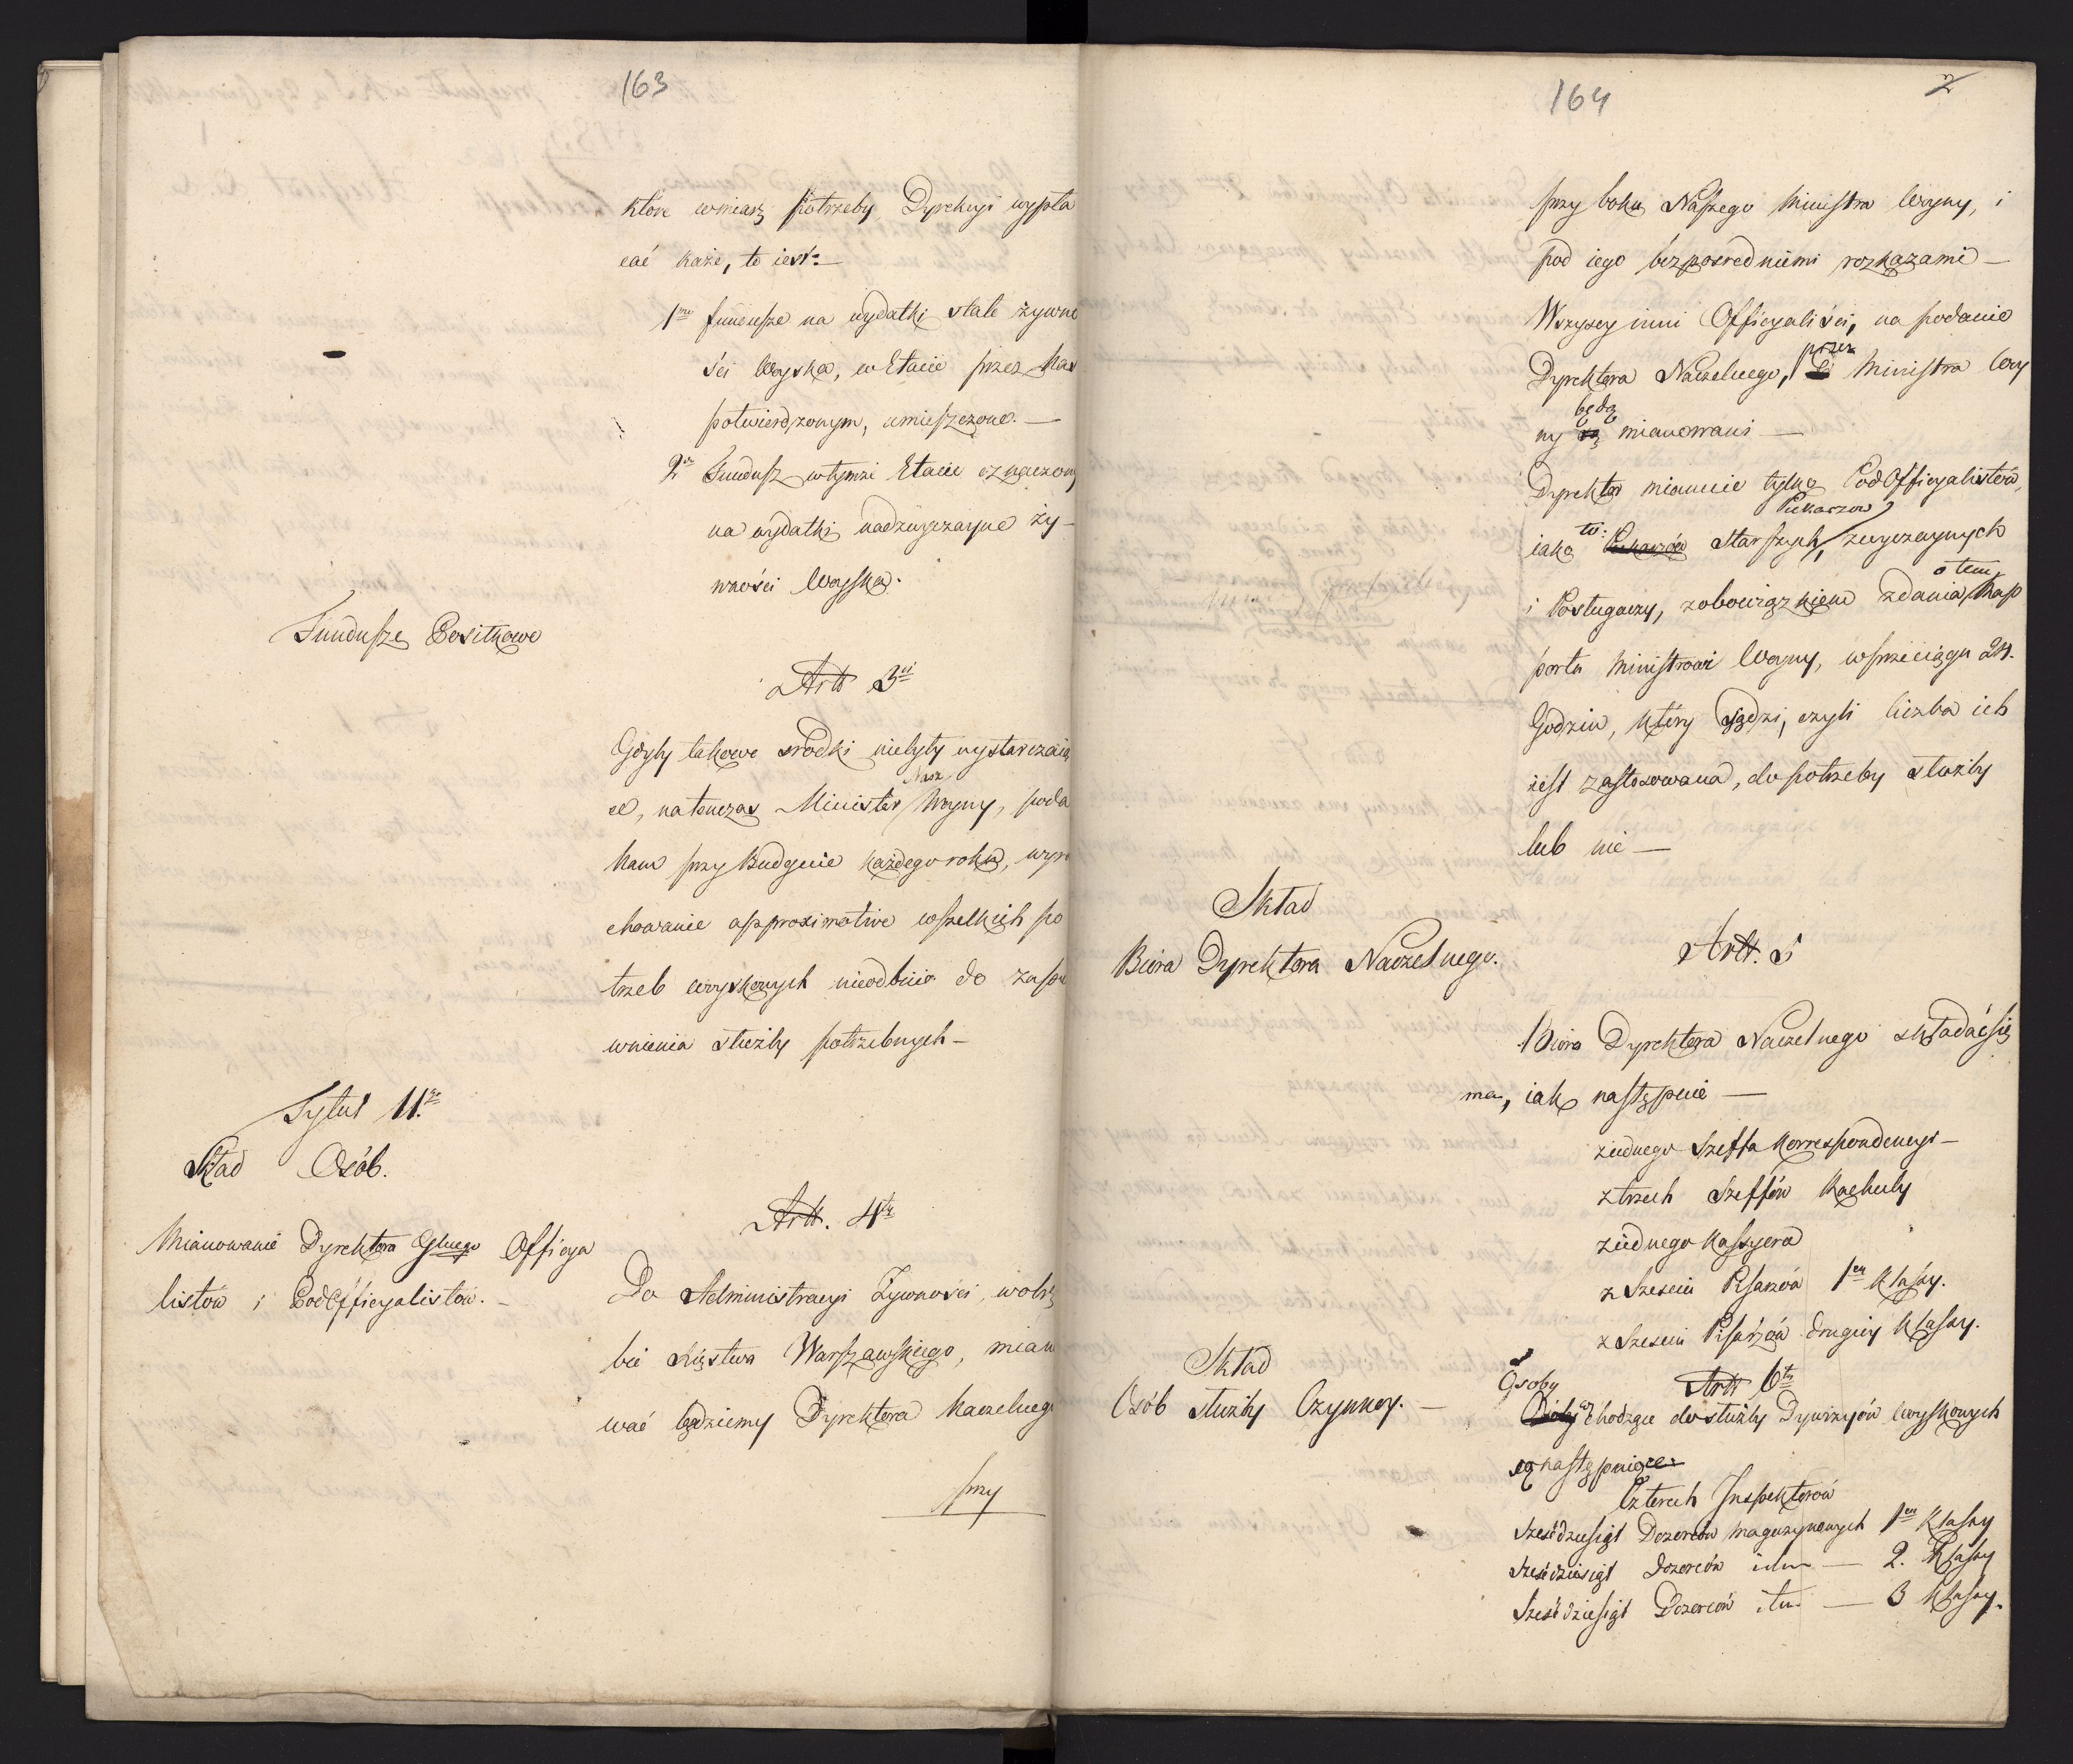 163
które wmiarę potrzeby Dyrekcyi wypła
cać każe, to iest:
1mo fundusze na wydatki stałe żywno
ści Woyska, w Etacie przez Nas
potwierdzonym, umieszczone. —
2do Fundusz wtymże Etacie oznaczony
na wydatki nadzwyczayne ży-
wności Woyska.
Fundusze Posiłkowe
Art 3ci
Gdyby takowe srodki niebyły wystarczaią
ce, natenczas Minister Nasz Woyny, poda
Nam przy Budgecie każdego roku, wyra
chowanie approximative wszelkich po
trzeb woyskowych nieodbicie do zape
wnienia służby potrzebnych —
Tytuł II.gi
Skład Osób.
Art. 4ty
Mianowanie Dyrektora Głnego Officya
listów i PodOfficyalistów. —
Do Administracyi Żywności, wobrę
bie Xięstwa Warszawskiego, miano
wać będziemy Dyrektora Naczelnego
przy
164
2
przy boku Naszego Ministra Woyny, i
pod iego bezpośredniemi rozkazami —
Wszyscy inni Officyaliści, na podanie
Dyrektora Naczelnego, przez Ministra Woy
ny będą mianowani —
Dyrektor mianuie tylko PodOfficyalistów,
iako to: Piekarzów Starszych, Piekarzow zwyczaynych
i Posługaczy, zobowiązkiem zdania o tem Rap
portu Ministrowi Woyny, wprzeciągu 24.
Godzin, który sądzi, czyli liczba ich
iest zastosowana, do potrzeby służby
lub nie —
Skład
Biura Dyrektora Naczelnego.
Art. 5
Biuro Dyrektora Naczelnego składać się
ma, iak następuie —
ziednego Szeffa Korrespondencyi —
ztrzech Szeffów Rachuby
ziednego Kassyera
z Sześciu Pisarzów 1ey Klassy.
z Sześciu Pisarzów drugiey Klassy.
Skład
Osób służby Czynney. —
Art 6ty
Osoby wchodzące do służby Dywizyów woyskowych
są następuiące:
Czterech Inspektorów
Sześćdziesiąt Dozorców magazynowych 1ey Klassy
Sześćdziesiąt Dozorców itm — 2. Klassy
Sześćdziesiąt Dozorców itm — 3 Klassy.